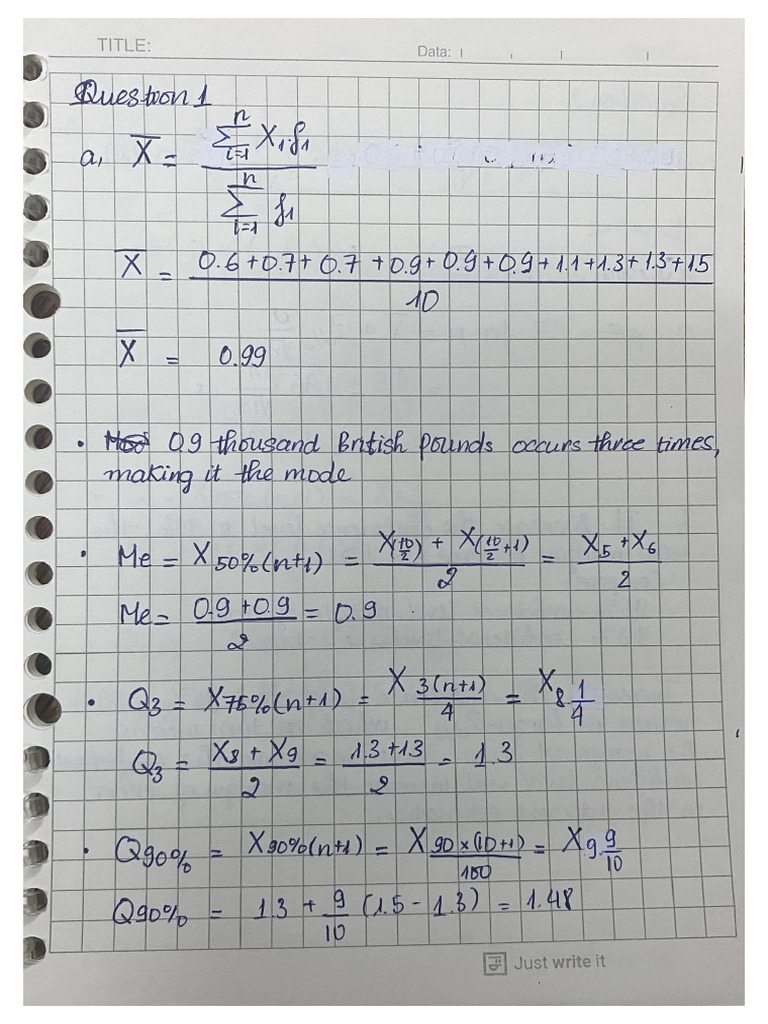 TITLE:
Data:
Question 1
a, X̄ = \frac{\sum_{i=1}^{n} X_1 f_1}{\sum_{i=1}^{n} f_1}
X̄ = \frac{0.6 + 0.7 + 0.7 + 0.9 + 0.9 + 0.9 + 1.1 + 1.3 + 1.3 + 1.5}{10}
X̄ = 0.99
• 0.9 thousand British pounds occurs three times,
making it the mode
• Me = X_{50%(n+1)} = \frac{X_{(\frac{10}{2})} + X_{(\frac{10}{2}+1)}}{2} = \frac{X_5 + X_6}{2}
Me = \frac{0.9 + 0.9}{2} = 0.9
• Q_3 = X_{75%(n+1)} = X_{\frac{3(n+1)}{4}} = X_{8.\frac{1}{4}}
Q_3 = \frac{X_8 + X_9}{2} = \frac{1.3 + 1.3}{2} = 1.3
• Q_{90%} = X_{90%(n+1)} = X_{\frac{90 × (10+1)}{100}} = X_{9.\frac{9}{10}}
Q_{90%} = 1.3 + \frac{9}{10} (1.5 - 1.3) = 1.48
Just write it